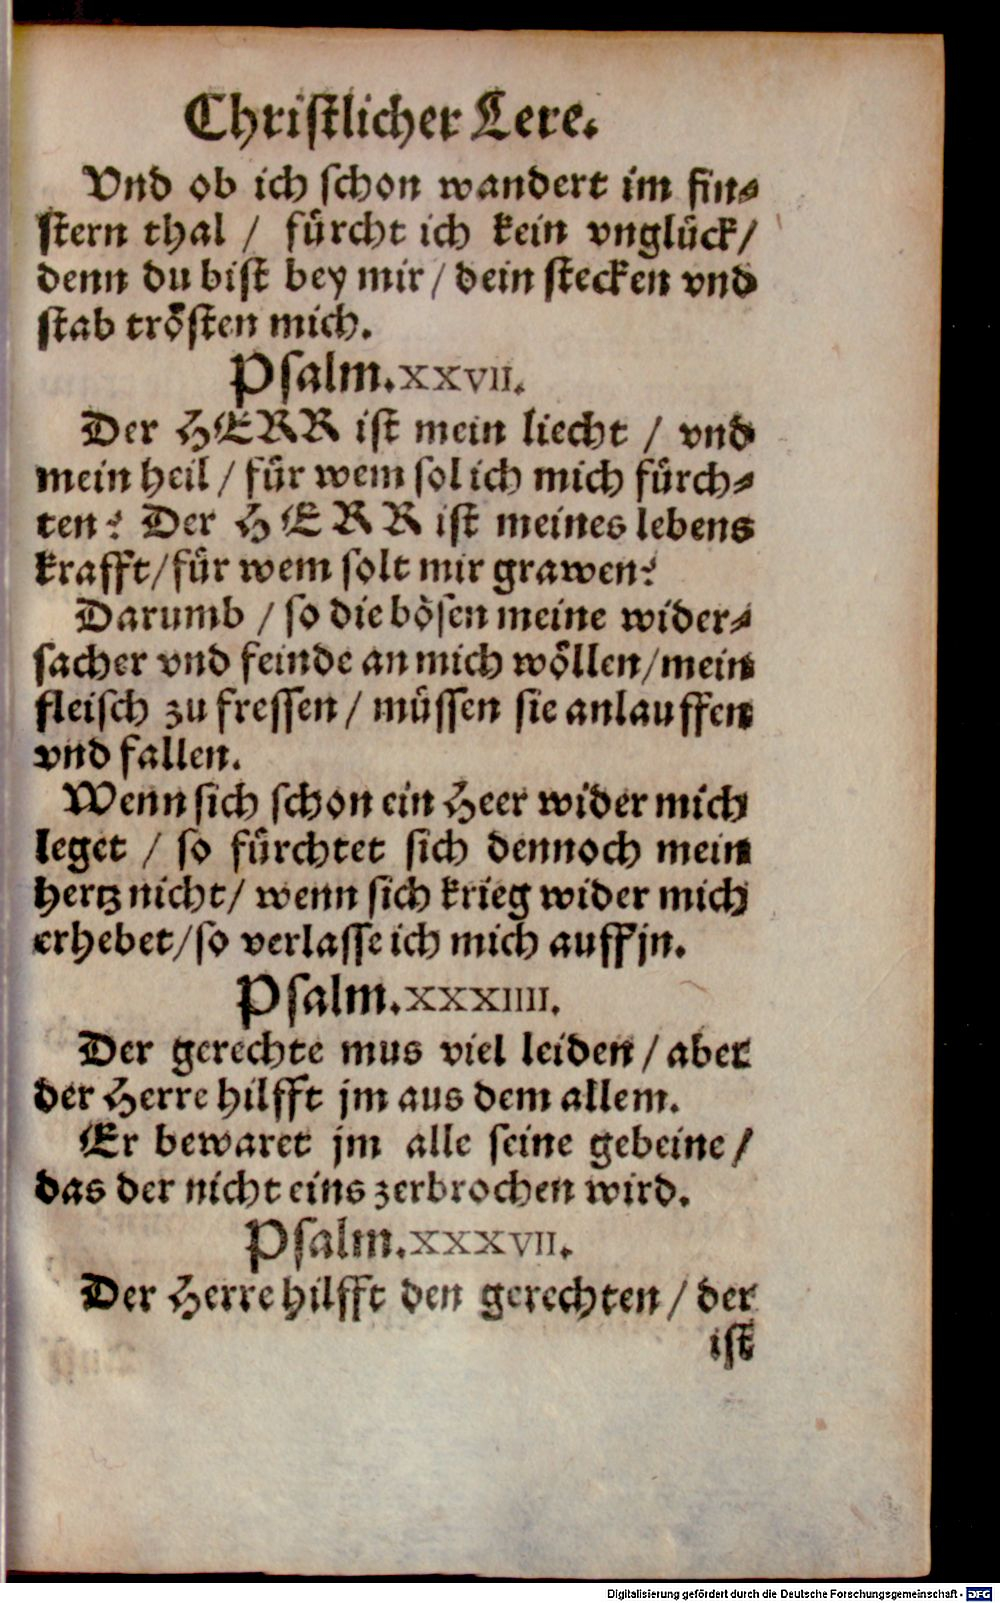 Christlicher Lere.
Vnd ob ich schon wandert im fin⸗
stern thal / fürcht ich kein vnglück/
denn du bist bey mir / dein stecken vnd
stab trösten mich.
Psalm.XXVII.
Der HERR ist mein liecht / vnd
mein heil / für wem sol ich mich fürch⸗
ten? Der HERR ist meines lebens
krafft/für wem solt mir grawen?
Darumb / so die bösen meine wider⸗
sacher vnd feinde an mich wöllen/mein
fleisch zu fressen / müssen sie anlauffen
vnd fallen.
Wenn sich schon ein Heer wider mich
leget / so fürchtet sich dennoch mein
hertz nicht/ wenn sich krieg wider mich
erhebet/so verlasse ich mich auff jn.
Psalm.XXXIIII.
Der gerechte mus viel leiden / aber
der Herre hilfft jm aus dem allem.
Er bewaret jm alle seine gebeine /
das der nicht eins zerbrochen wird.
Psalm.XXXVII.
Der Herre hilfft den gerechten / der
ist
Digitalisierung gefördert durch die Deutsche Forschungsgemeinschaft - DFG